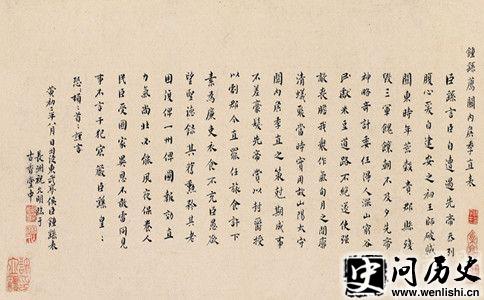 鍾繇薦關內侯季直表
臣繇言臣自遭遇先帝忝列
腹心爰自建安之初王師破賊
關東時年荒穀貴郡縣殘
毀三軍餽饟朝不及夕先帝
神略奇計委任得人深山窮谷
民獻米豆道路不絕遂使強
敵喪膽我衆作氣旬月之間廓
清蟻聚當時實用故山陽太守
關內侯季直之策尅期成事
不差豪髮先帝賞以封爵授
以劇郡今直罷任旅食許下
素為廉吏衣食不充臣愚欲
望聖德錄其舊勳矜其老
困復俾一州俾圖報效直
力氣尚壯必能夙夜保養人
民臣受國家異恩不敢雷同見
事不言干犯宸嚴臣繇皇〻
恐〻頓〻首〻謹言
黃初二年八月日司徒東武亭侯臣鍾繇表
長洲祝允明臨于
堂中
史问历史
www.wenlishi.cn